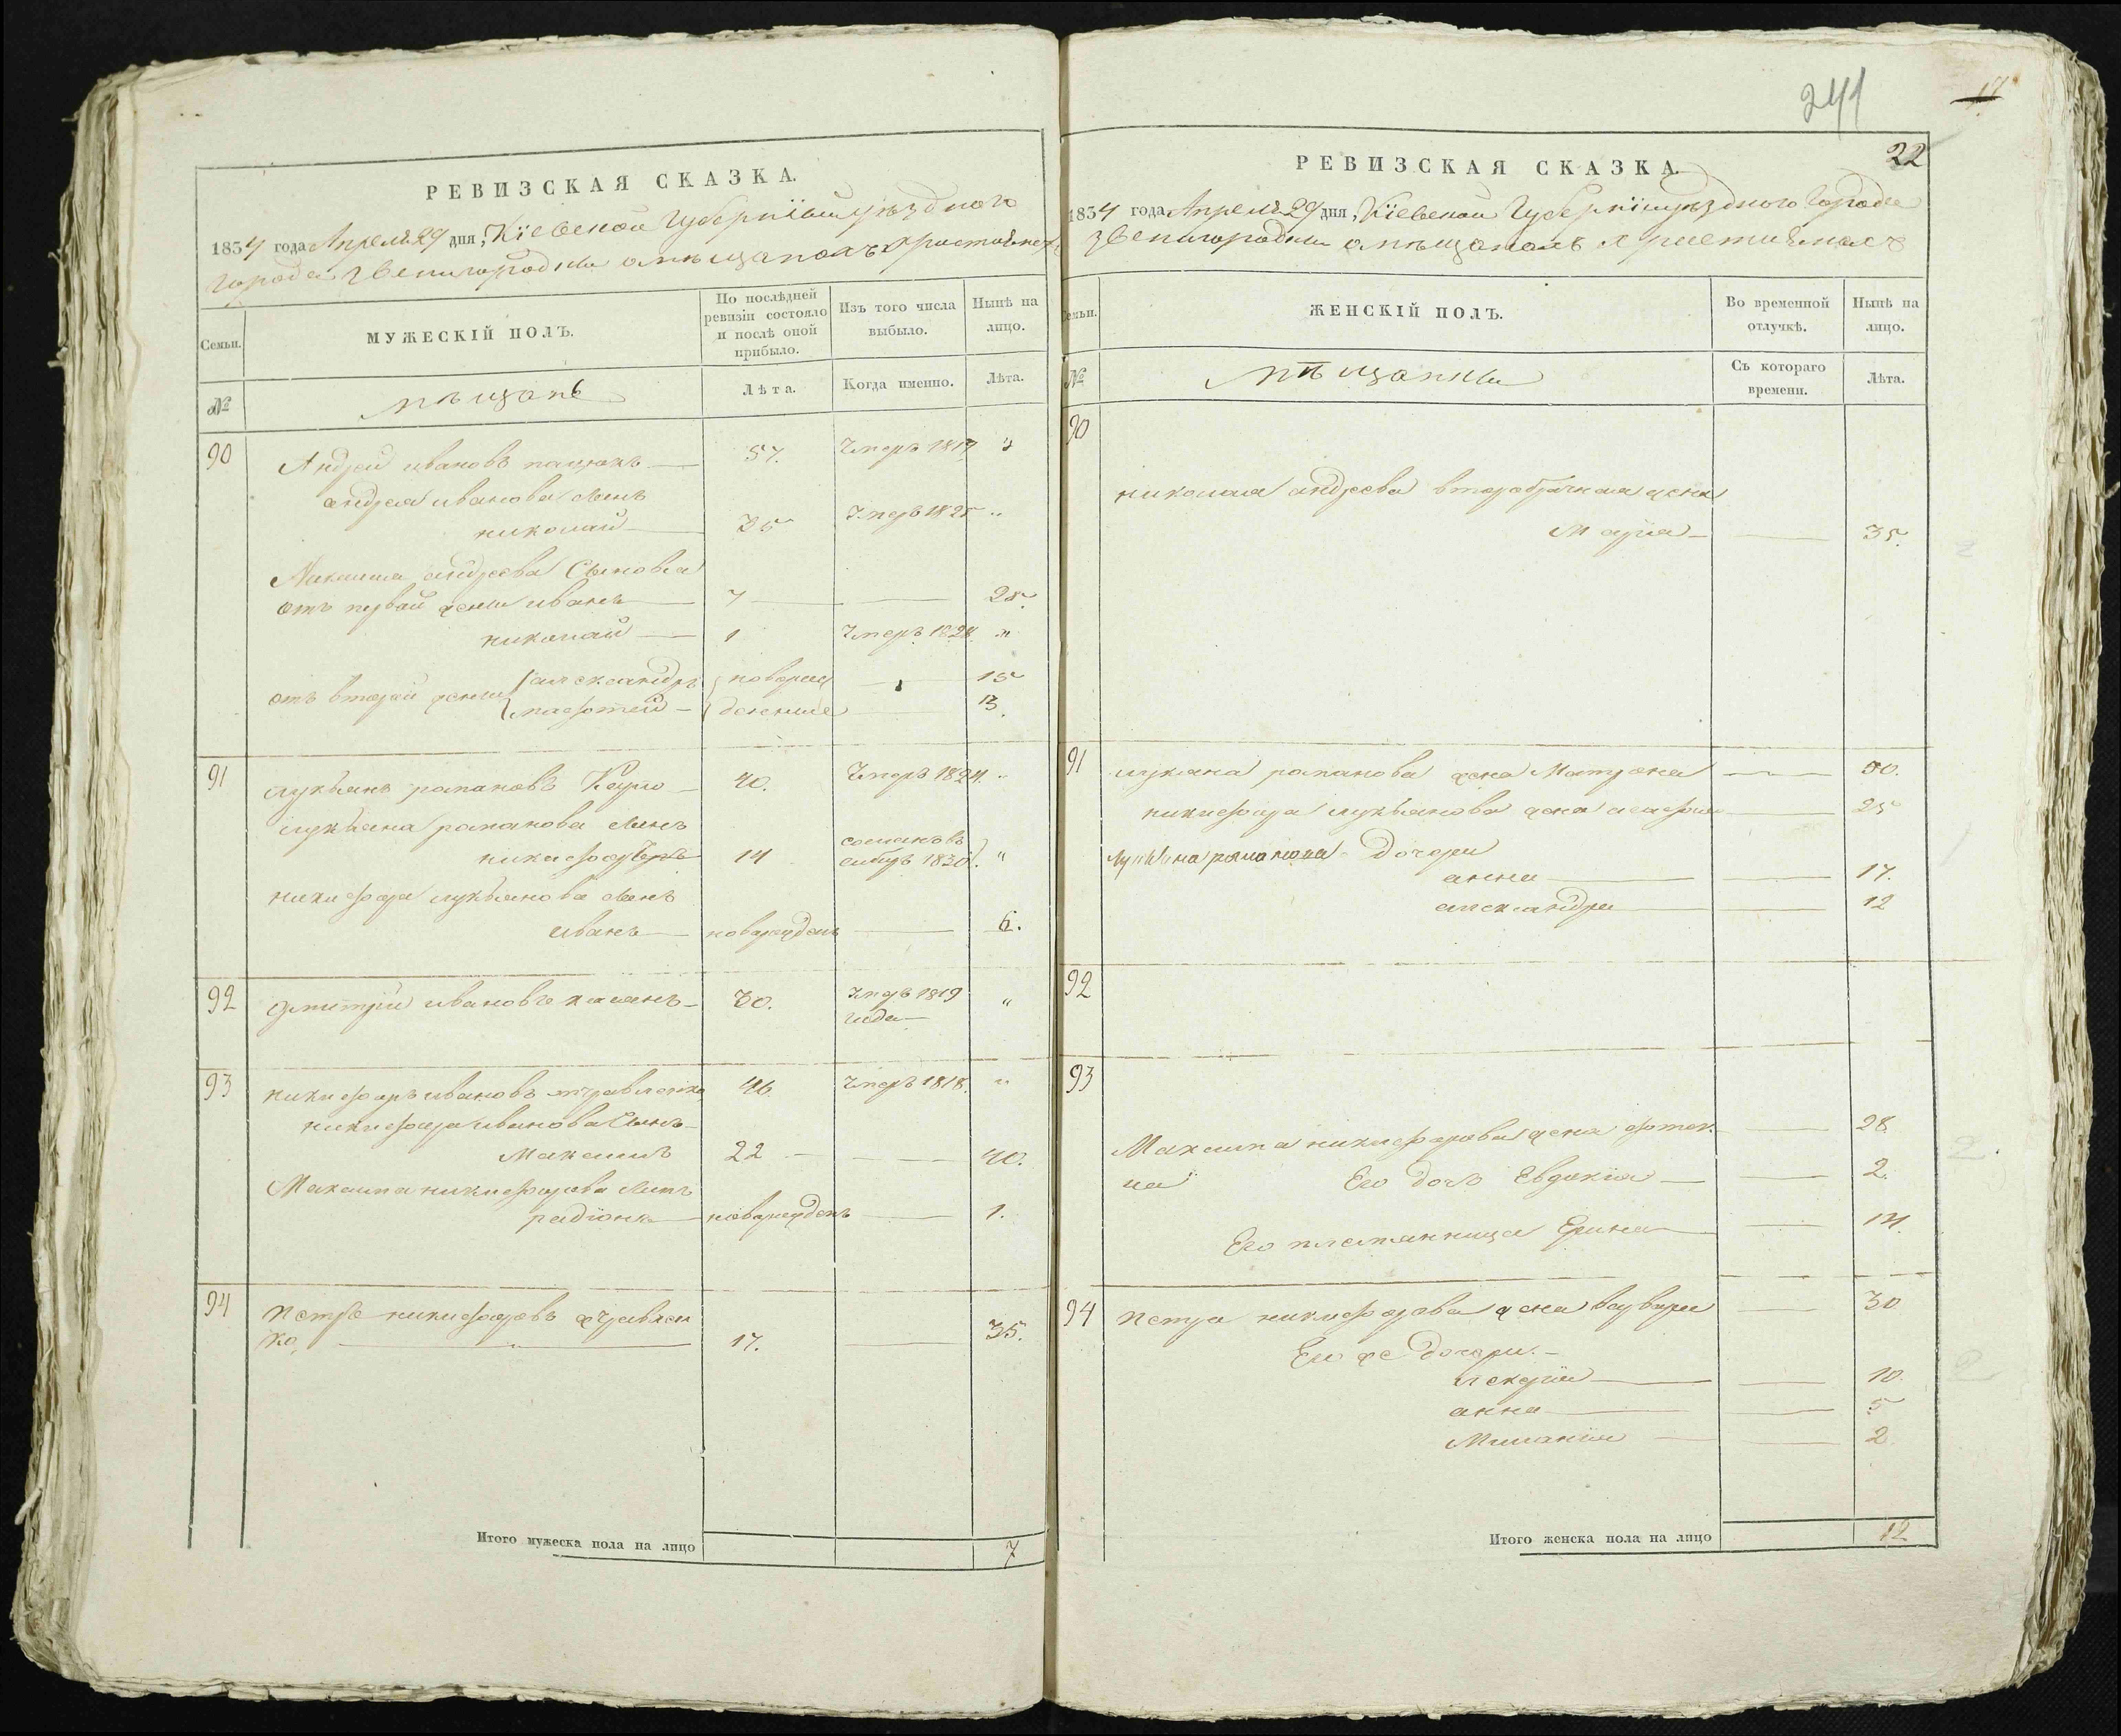 РЕВИЗСКАЯ СКАЗКА.
1834 года Апреля 29 дня, Кіевской Губерніи уѣзднаго
города Звенигородки о мѣщанахъ христіянахъ
Семьи.
МУЖЕСКІЙ ПОЛЪ.
По послѣдней ревизіи состояло и послѣ оной прибыло.
Изъ того числа выбыло.
Нынѣ на лицо.
№
мѣщанѣ
Лѣта.
Когда именно.
Лѣта.
90
Андрей ивановъ 57. Умеръ 1817 "
андрея иванова сынъ
николай 35 Умеръ 1825 "
Николая андреева Сыновья
отъ первой жены иванъ 7 28.
николай 1 Умеръ 1828 "
отъ второй жены александръ новорож 15
денные 13.
91
лукьянъ романовъ 40. Умеръ 1824. "
лукьяна романова сынъ
никифоръ 14 сосланъ въ
сибирь 1830. "
никифора лукьянова сынъ
иванъ новорожденъ 6.
92
дмитрій ивановъ 30. Умеръ 1819 "
года
93
никифоръ ивановъ журавленко 46. Умеръ 1818. "
никифора иванова Сынъ
Максимъ 22 40.
Максима никифорова сынъ
радіонъ новорожденъ 1.
94
Петръ никифоровъ журавлен
ко, 17. 35.
Итого мужеска пола на лицо 7
241
17
22
РЕВИЗСКАЯ СКАЗКА
1834 года Апреля 29 дня, Кіевской Губерніи уѣзднаго Города
Звенигородки о мѣщанахъ христіянахъ
Семьи.
ЖЕНСКІЙ ПОЛЪ.
Во временной отлучкѣ.
Нынѣ на лицо.
№
мѣщанки
Съ котораго времени.
Лѣта.
90
николая андреева второбрачная жена
Марія 35.
91
лукяна романова жена Матрона 50.
никифора лукьянова жена 25
лукьяна романова Дочери
анна 17.
александра 12
92
93
Максима никифорова жена фотен. 28
ія
Его дочь Евдокія 2.
Его племянница Ерина 14.
94
Петра никифорова жена варвара 30
Его же Дочери.
анна 5
Миланія 2
10.
Итого женска пола на лицо 12